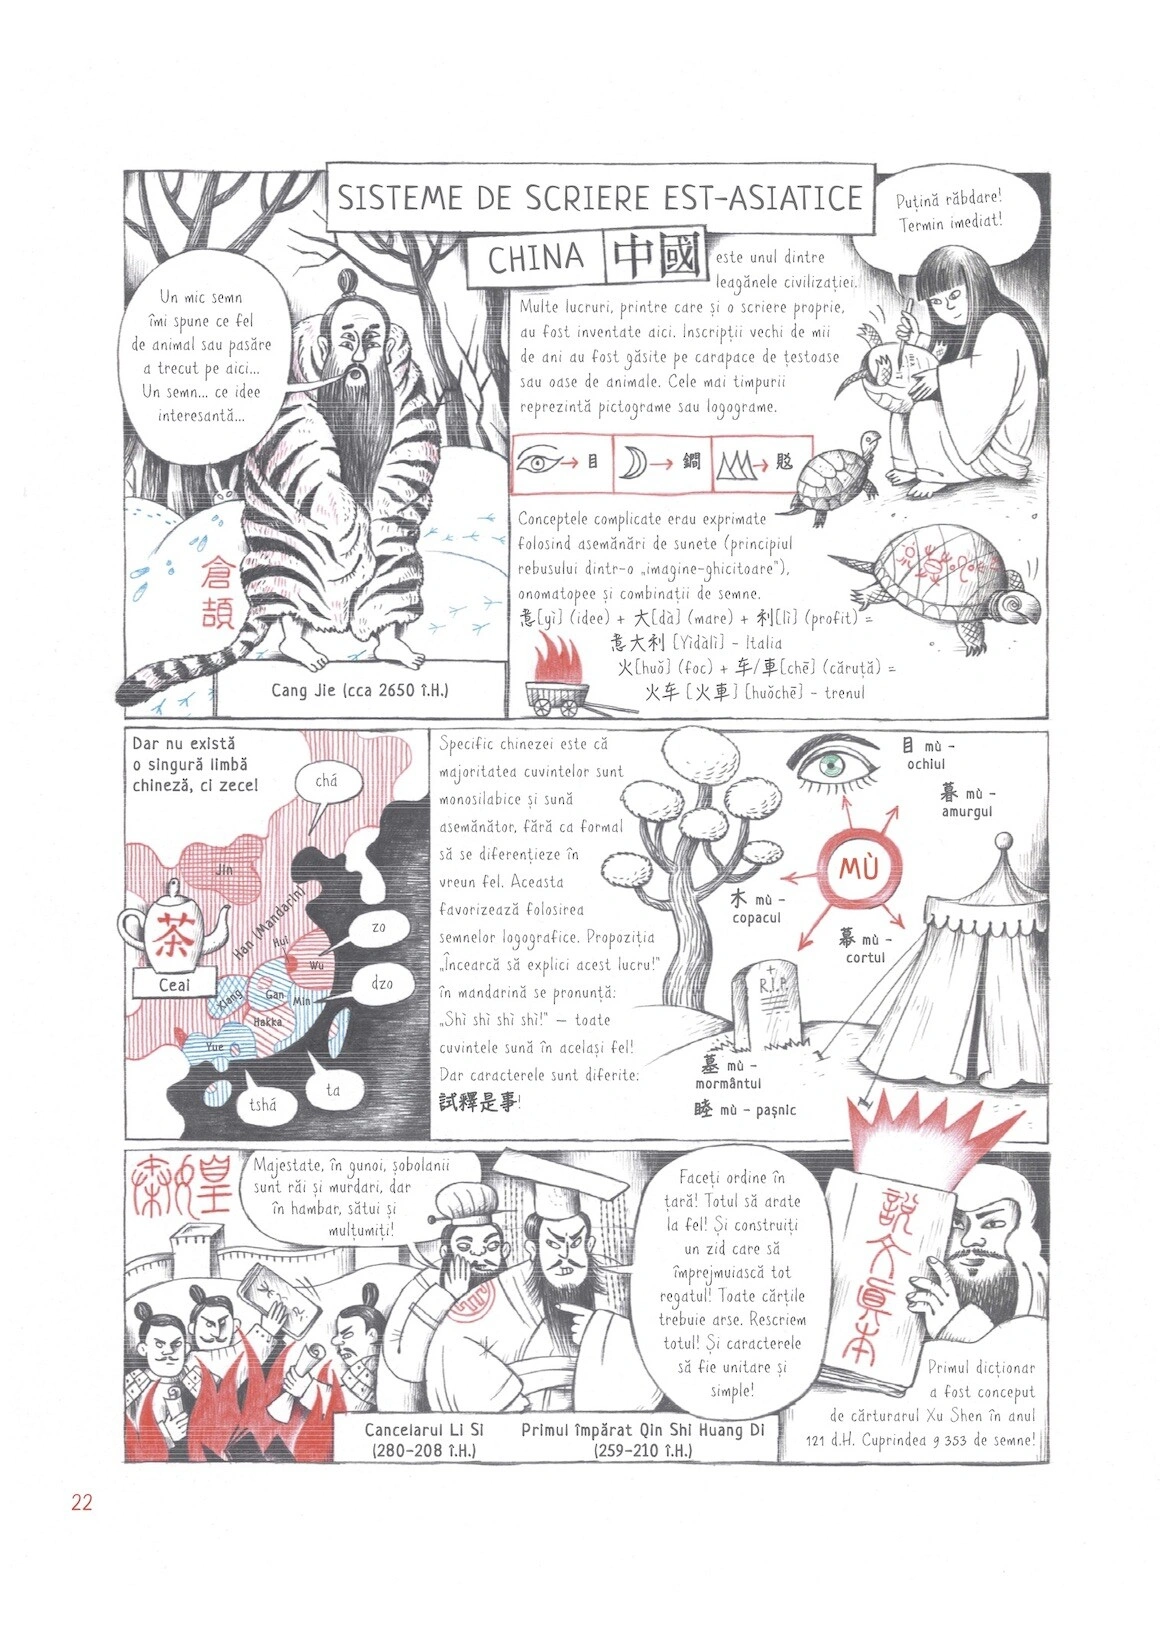 SISTEME DE SCRIERE EST-ASIATICE
CHINA 中國
Un mic semn
îmi spune ce fel
de animal sau pasăre
a trecut pe aici...
Un semn... ce idee
interesantă...
倉
頡
Cang Jie (cca 2650 î.H.)
este unul dintre
leagănele civilizației.
Multe lucruri, printre care și o scriere proprie,
au fost inventate aici. Inscripții vechi de mii
de ani au fost găsite pe carapace de țestoase
sau oase de animale. Cele mai timpurii
reprezintă pictograme sau logograme.
Puțină răbdare!
Termin imediat!
目
Conceptele complicate erau exprimate
folosind asemănări de sunete (principiul
rebusului dintr-o „imagine-ghicitoare"),
onomatopee și combinații de semne.
意[yì] (idee) + 大[dà] (mare) + 利[lì] (profit) =
意大利 [Yìdàlì] – Italia
火[huǒ] (foc) + 车/車[chē] (căruță) =
火车 [火車] [huǒchē] – trenul
Dar nu există
o singură limbă
chineză, ci zece!
chá
Jin
Han (Mandarin)
Hui
Wu
zo
茶
Ceai
Xiang
Gan
Min
dzo
Hakka
Yue
ta
tshá
Specific chinezei este că
majoritatea cuvintelor sunt
monosilabice și sună
asemănător, fără ca formal
să se diferențieze în
vreun fel. Aceasta
favorizează folosirea
semnelor logografice. Propoziția
„Încearcă să explici acest lucru!"
în mandarină se pronunță:
„Shì shì shì shì!" – toate
cuvintele sună în același fel!
Dar caracterele sunt diferite:
試釋是事!
目 mù –
ochiul
暮 mù –
amurgul
MÙ
木 mù –
copacul
幕 mù –
cortul
R.I.P.
墓 mù –
mormântul
睦 mù – pașnic
Majestate, în gunoi, șobolanii
sunt răi și murdari, dar
în hambar, sătui și
mulțumiți!
Faceți ordine în
țară! Totul să arate
la fel! Și construiți
un zid care să
împrejmuiască tot
regatul! Toate cărțile
trebuie arse. Rescriem
totul! Și caracterele
să fie unitare și
simple!
Cancelarul Li Si
(280–208 î.H.)
Primul împărat Qin Shi Huang Di
(259–210 î.H.)
Primul dicționar
a fost conceput
de cărturarul Xu Shen în anul
121 d.H. Cuprindea 9 353 de semne!
22